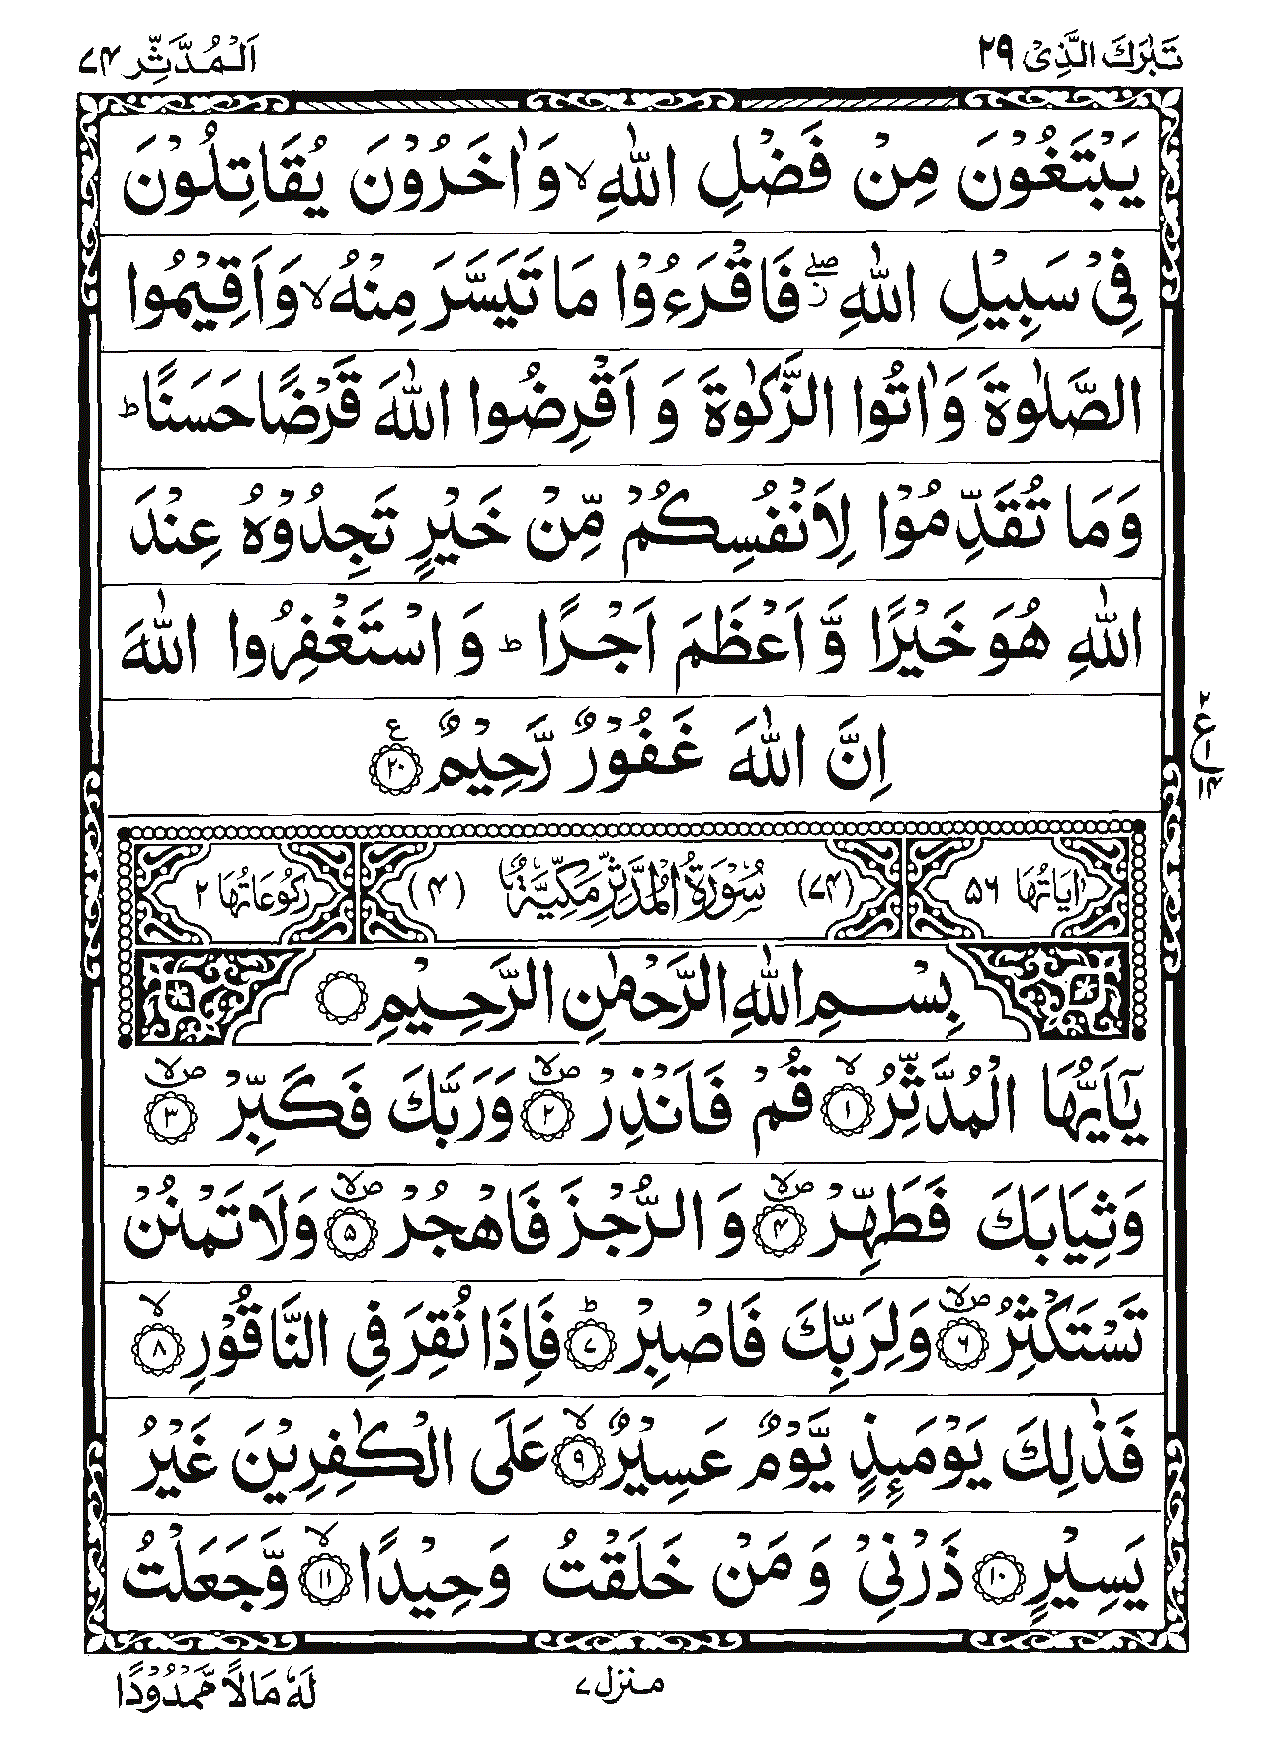 تَبٰرَكَ الَّذِیْ ٢٩
اَلْمُدَّثِّر ٧٤
یَبْتَغُوْنَ مِنْ فَضْلِ اللّٰهِ ۙ وَاٰخَرُوْنَ یُقَاتِلُوْنَ
فِیْ سَبِیْلِ اللّٰهِ ۖز فَاقْرَءُوْا مَا تَیَسَّرَ مِنْهُ ۙ وَاَقِیْمُوا
الصَّلٰوةَ وَاٰتُوا الزَّكٰوةَ وَ اَقْرِضُوا اللّٰهَ قَرْضًا حَسَنًا ؕ
وَمَا تُقَدِّمُوْا لِاَنْفُسِكُمْ مِّنْ خَیْرٍ تَجِدُوْهُ عِنْدَ
اللّٰهِ هُوَ خَیْرًا وَّ اَعْظَمَ اَجْرًا ؕ وَ اسْتَغْفِرُوا اللّٰهَ
اِنَّ اللّٰهَ غَفُوْرٌ رَّحِیْمٌ ﴿٢٠﴾ ع
٢ ع ١ ١٤
اٰیَاتُهَا ٥٦ (٧٤) سُوْرَةُ الْمُدَّثِّرِ مَكِّیَّةٌ (٤) رُكُوْعَاتُهَا ٢
بِسْمِ اللّٰهِ الرَّحْمٰنِ الرَّحِیْمِ
یٰۤاَیُّهَا الْمُدَّثِّرُ ۙ﴿١﴾ قُمْ فَاَنْذِرْ ۪ۙ﴿٢﴾ وَرَبَّكَ فَكَبِّرْ ۪ۙ﴿٣﴾
وَثِیَابَكَ فَطَهِّرْ ۪ۙ﴿٤﴾ وَ الرُّجْزَ فَاهْجُرْ ۪ۙ﴿٥﴾ وَلَا تَمْنُنْ
تَسْتَكْثِرُ ۪ۙ﴿٦﴾ وَلِرَبِّكَ فَاصْبِرْ ؕ﴿٧﴾ فَاِذَا نُقِرَ فِی النَّاقُوْرِ ۙ﴿٨﴾
فَذٰلِكَ یَوْمَىِٕذٍ یَّوْمٌ عَسِیْرٌ ۙ﴿٩﴾ عَلَی الْكٰفِرِیْنَ غَیْرُ
یَسِیْرٍ ﴿١٠﴾ ذَرْنِیْ وَ مَنْ خَلَقْتُ وَحِیْدًا ۙ﴿١١﴾ وَّجَعَلْتُ
منزل ٧
لَهٗ مَالًا مَّمْدُوْدًا